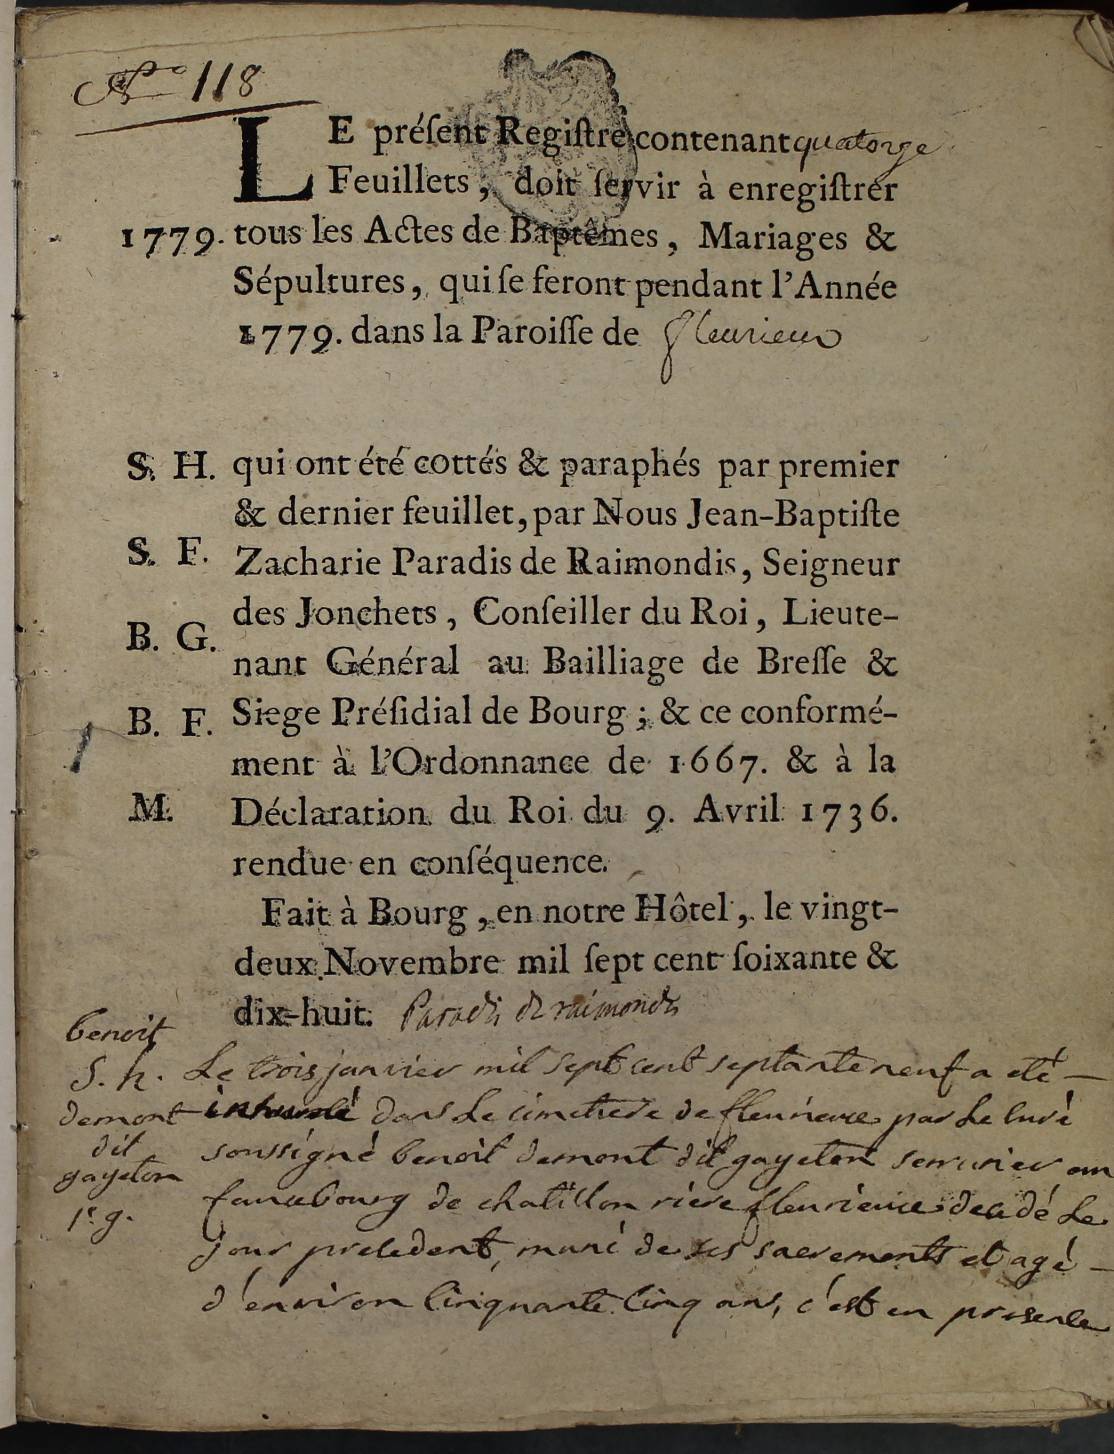 No 118
LE préſent Regiſtre contenant quatorze
Feuillets, doit ſervir à enregiſtrer
1779. tous les Actes de Baptêmes, Mariages &
Sépultures, qui ſe feront pendant l'Année
1779. dans la Paroiſſe de fleurieux
S. H. qui ont été cottés & paraphés par premier
& dernier feuillet, par Nous Jean-Baptiſte
S. F. Zacharie Paradis de Raimondis, Seigneur
des Jonchets, Conſeiller du Roi, Lieute-
B. G.
nant Général au Bailliage de Breſſe &
B. F. Siege Préſidial de Bourg; & ce conformé-
ment à l'Ordonnance de 1667. & à la
M. Déclaration du Roi du 9. Avril 1736.
rendue en conſéquence.
Fait à Bourg, en notre Hôtel, le vingt-
deux Novembre mil ſept cent ſoixante &
dix-huit. Paradis de raimondis
benoit
S. h.
demont
dit
gayeton
1r. g.
Le trois janvier mil sept cent septante neuf a eté
inhumé dans le cimetiere de fleurieux par le curé
soussigné benoit demont dit gayeton serrurier au
fauxbourg de chatillon riere fleurieux decedé le
jour precedent, muni de ses sacrements et agé
d'environ cinquante cinq ans, c'est en presence